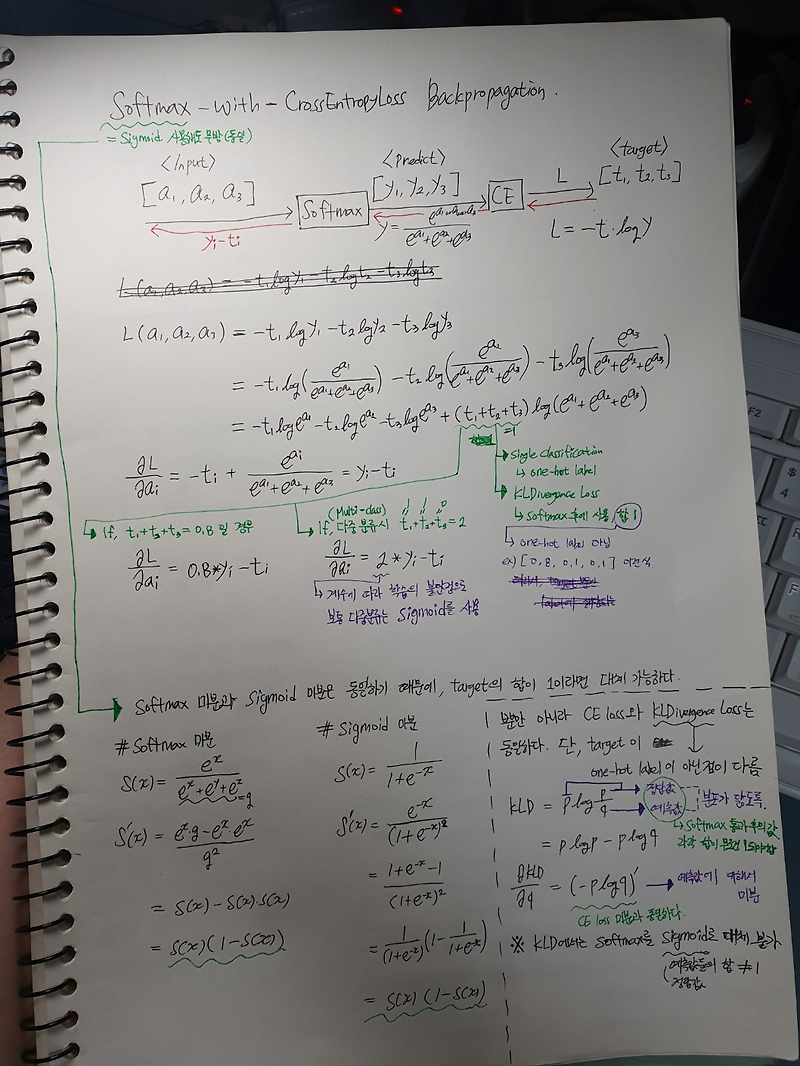 Softmax - with - CrossEntropyLoss Backpropagation.
= Sigmoid 사용해도 무방(동일)
<Input> <Predict> <target>
[a₁, a₂, a₃] Softmax [y₁, y₂, y₃] CE L [t₁, t₂, t₃]
yᵢ-tᵢ
L = -t·log y
L(a₁, a₂, a₃) = -t₁log y₁ - t₂log y₂ - t₃log y₃
= -t₁log(e^a₁ / (e^a₁+e^a₂+e^a₃)) - t₂log(e^a₂ / (e^a₁+e^a₂+e^a₃)) - t₃log(e^a₃ / (e^a₁+e^a₂+e^a₃))
= -t₁log e^a₁ - t₂log e^a₂ - t₃log e^a₃ + (t₁+t₂+t₃) log(e^a₁+e^a₂+e^a₃)
=1
∂L/∂aᵢ = -tᵢ + e^aᵢ / (e^a₁+e^a₂+e^a₃) = yᵢ-tᵢ
Single classification
↳ one-hot label
KLDivergance Loss
↳ Softmax 후에 사용, 합 1
↳ one-hot label 아님
ex) [0.8, 0.1, 0.1] 이런식
If, t₁+t₂+t₃ = 0.8 일 경우
∂L/∂aᵢ = 0.8*yᵢ-tᵢ
(Multi-class) 1 1 0
If, 다중 분류시 t₁+t₂+t₃ = 2
∂L/∂aᵢ = 2*yᵢ-tᵢ
↳ 계수에 따라 학습의 불안정으로
보통 다중분류는 Sigmoid를 사용
Softmax 미분과 Sigmoid 미분은 동일하기 때문에, target의 합이 1이라면 대체 가능하다.
# Softmax 미분
S(x) = e^x / (e^x+e^y+e^z) = g
S'(x) = (e^x·g - e^x·e^x) / g²
= S(x) - S(x)·S(x)
= S(x)(1-S(x))
# Sigmoid 미분
S(x) = 1 / (1+e^-x)
S'(x) = e^-x / (1+e^-x)²
= (1+e^-x-1) / (1+e^-x)²
= 1/(1+e^-x) (1 - 1/(1+e^-x))
= S(x) (1-S(x))
뿐만 아니라 CE loss와 KLDivergence Loss는
동일하다. 단, target이
one-hot label이 아닌점이 다름
KLD = p log p/q → 정답값
→ 예측값 분포가 닮도록
↳ Softmax 통과 후의 값
= p log p - p log q
∂KLD/∂q = (-p log q)' → 예측값에 대해서
미분
CE loss 미분과 동일하다.
※ KLD에서는 Softmax를 Sigmoid로 대체 불가
예측값들의 합 ≠ 1
정답값